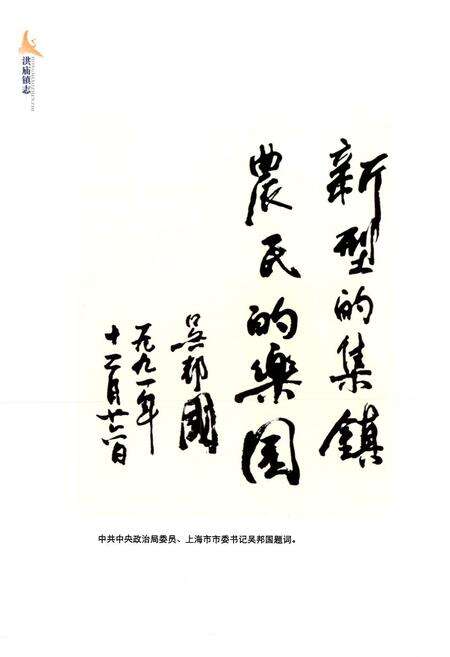 洪庙镇志
新型的集鎮
農民的樂园
吴邦國
一九九一年
十二月廿六日
中共中央政治局委员、上海市市委书记吴邦国题词。